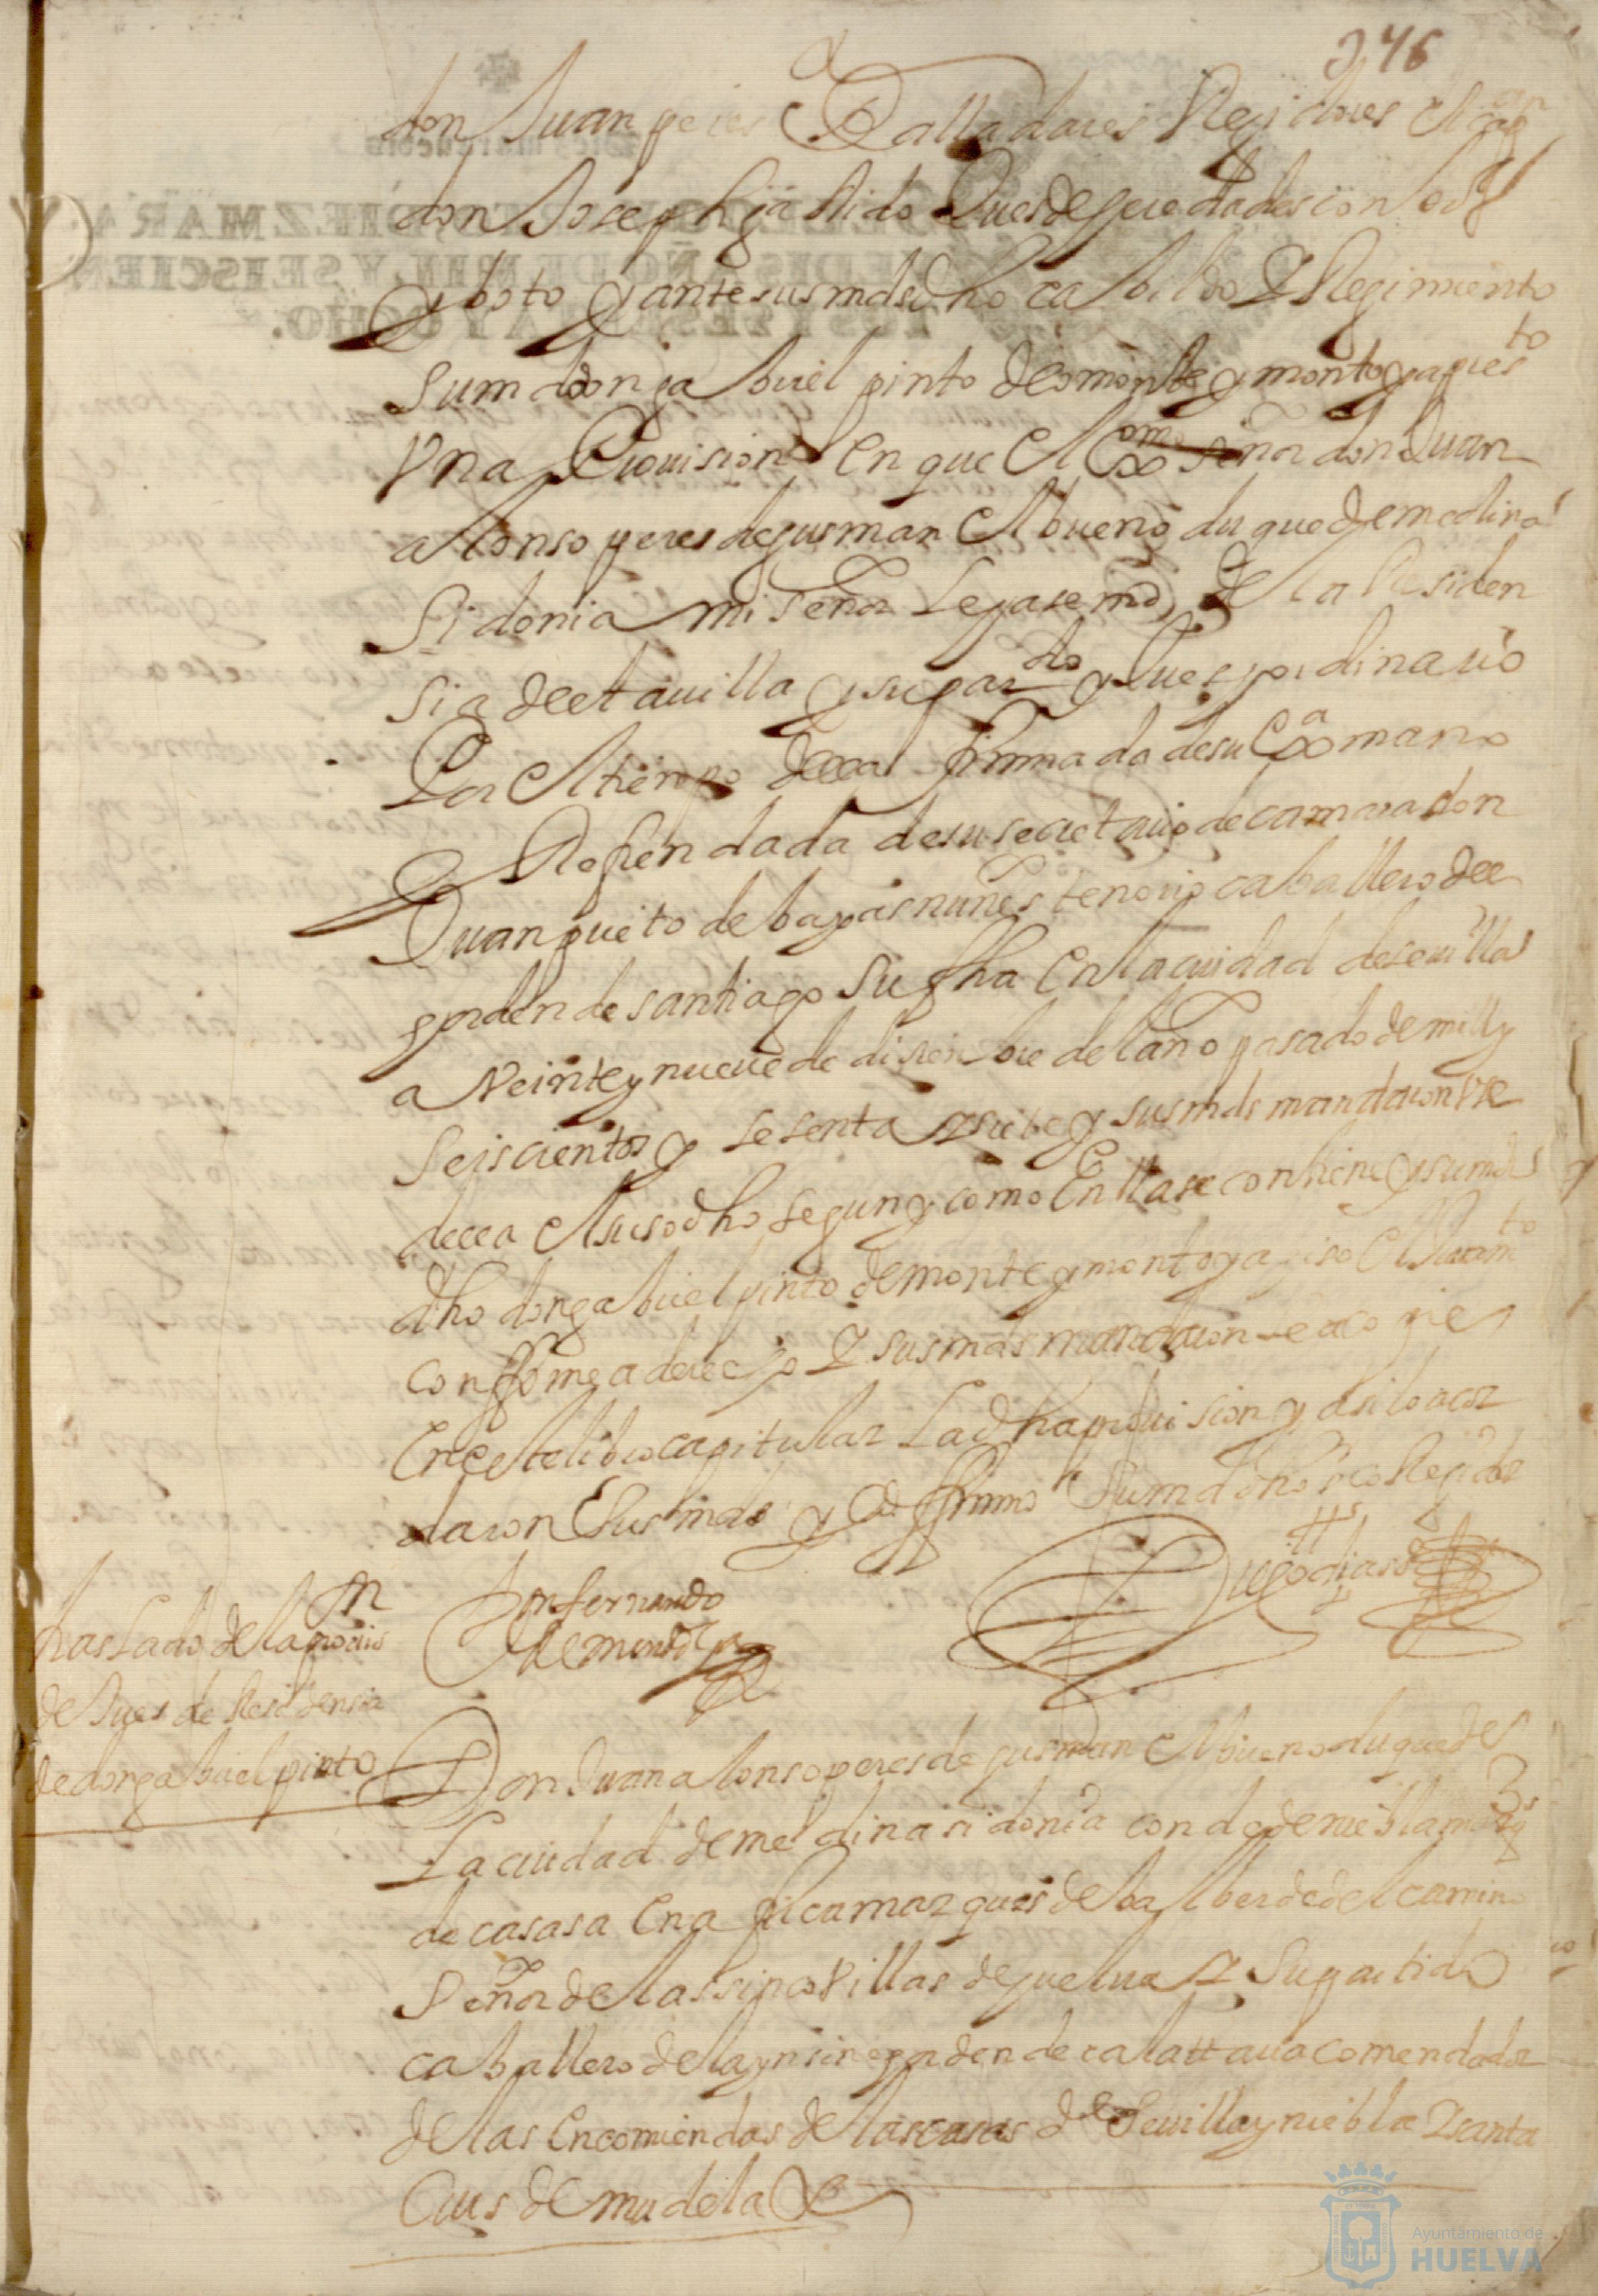 246
don Juan peres Balladares Regidores el cap^an
don Joseph garrido Jues de heredades con bos
y boto y ante sus mds dho cabildo y Regimiento
su md don gabriel pinto de monte y montoya pres^to
Una Prouision En que el Ex^mo señor don Juan
alonso peres de gusman El bueno duque de medina
Sidonia mi señor le hase md de la Residen
sia de esta uilla y su par^tdo y Jues hordinario
Por el tiempo de ella firmada de su Ex^a mano
y Refrendada de su secretario de camara don
Juan prieto de bayas nuñes tenorio caballero del
horden de santiago su fha En la ciudad de seuilla
a Veinte y nueue de disienbre del año pasado de mill y
Seiscientos y sesenta y siete y sus mds mandaron Use
de ella El susodho segun y como En ella se contiene y su md
dho don gabriel pinto de monte y montoya hiso El Juram^to
conforme a derecho y sus mds mandaron se acopie
En este libro capitular La dha prouision y asi lo acor
daron Sus mds y de firmo Su md El señor coRegidor
Don fernando
de mendoça
Diego dias
traslado de la prouis^n
de Jues de Residensia
de don gabriel pinto
Don Juan alonso peres de gusman El bueno duque de
La ciudad de medina sidonia conde de niebla marq^s
de casasa En africa marques de balberde del camino
Señor de las sinco Villas de huelua y Su partido
caballero de la ynsine horden de calattaua comendador
de las Encomiendas de las casas de Seuilla y niebla y santa
Crus de mudela
Ayuntamiento de
HUELVA